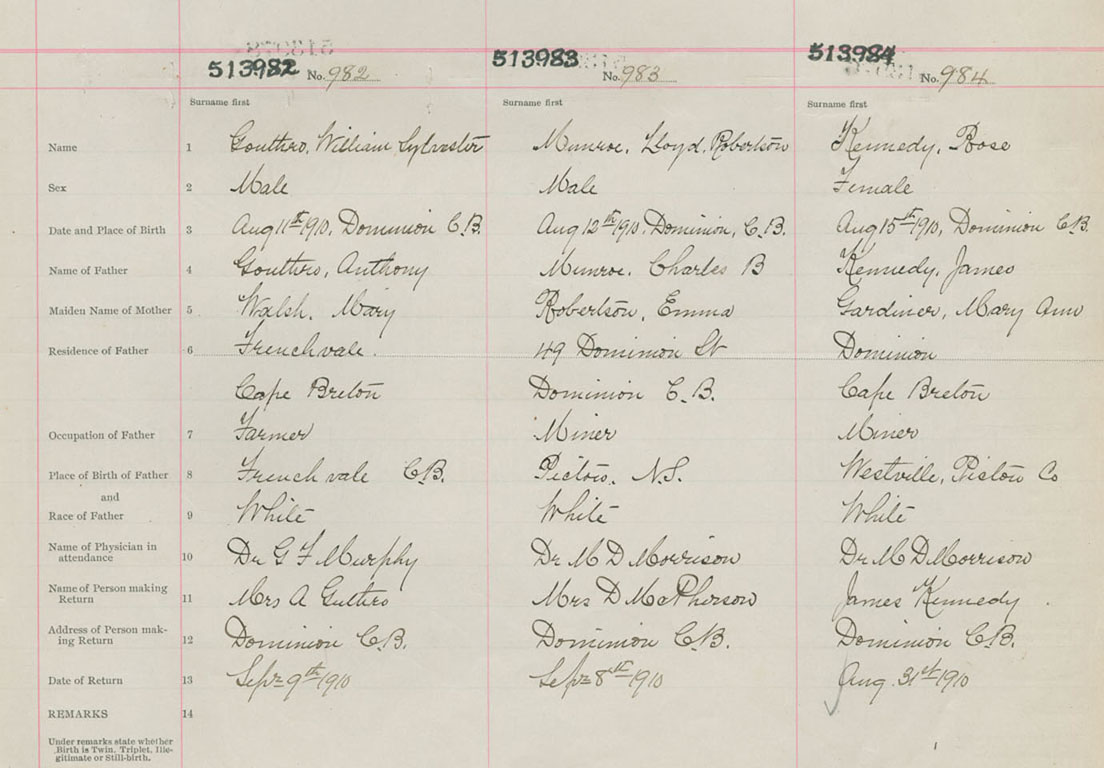 513982 No. 982 513983 No. 983 513984 No. 984
Surname first Surname first Surname first
Name 1 Gouthro, William Sylvester Munroe, Lloyd, Robertson Kennedy, Rose
Sex 2 Male Male Female
Date and Place of Birth 3 Aug 11th 1910, Dominion C.B. Aug 12th 1910, Dominion, C.B. Aug 15th 1910, Dominion C.B.
Name of Father 4 Gouthro, Anthony Munroe, Charles B Kennedy, James
Maiden Name of Mother 5 Walsh, Mary Robertson, Emma Gardiner, Mary Ann
Residence of Father 6 Frenchvale. 49 Dominion St Dominion
Cape Breton Dominion C.B. Cape Breton
Occupation of Father 7 Farmer Miner Miner
Place of Birth of Father 8 Frenchvale C.B. Pictou, N.S. Westville, Pictou Co
and
Race of Father 9 White White White
Name of Physician in
attendance 10 Dr G F Murphy Dr M D Morrison Dr M D Morrison
Name of Person making
Return 11 Mrs A Guthro Mrs D McPherson James Kennedy
Address of Person mak-
ing Return 12 Dominion C.B. Dominion C.B. Dominion C.B.
Date of Return 13 Sept 9th 1910 Sept 8th 1910 Aug. 31st 1910
REMARKS 14
Under remarks state whether
Birth is Twin, Triplet, Ille-
gitimate or Still-birth.